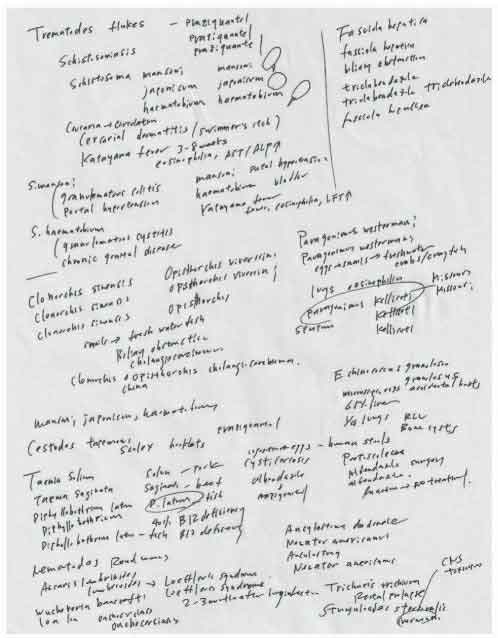 Trematodes flukes - praziquantel
praziquantel
praziquantel
Schistosomiasis
Schistosoma mansoni mansoni
japonicum japonicum
haematobium haematobium
Cercaria
(cercarial dermatitis / swimmer's itch)
Katayama fever 3-8 weeks
eosinophilia, AST/ALP↑
S. mansoni
granulomatous colitis
portal hypertension
mansoni portal hypertension
haematobium bladder
Katayama fever
fever, eosinophilia, LFT↑
S. haematobium
granulomatous cystitis
chronic genital disease
Clonorchis sinensis Opisthorchis viverrini
Clonorchis sinensis Opisthorchis viverrini
Clonorchis sinensis Opisthorchis
snails → fresh water fish
Biliary obstruction
Cholangiocarcinoma
Clonorchis Opisthorchis cholangiocarcinoma
China
mansoni, japonicum, haematobium
Fasciola hepatica
fasciola hepatica
biliary obstruction
triclabendazole
triclabendazole triclabendazole
fasciola hepatica
Paragonimus westermani
Paragonimus westermani
eggs → snails → freshwater
crabs/crayfish
lungs eosinophilia
Paragonimus Kellicoti Missouri
Kellicoti Missouri
Kellicoti
Cestodes tapeworms Scolex hooklets praziquantel
Taenia Solium Solium - pork
Taenia Saginata Saginata - beef
Diphyllobothrium latum D. latum fish
Diphyllobothrium 40% B12 deficiency
Diphyllobothrium latum - fish B12 deficiency
eggs - human stools
cysticercosis
Albendazole
praziquantel
Echinococcus granulosus
granulosus
accidental hosts
65% liver
lungs RLL
Bone cysts
Protoscoleces
Albendazole surgery
albendazole
inactive → no treatment
Nematodes Roundworms
Ascaris lumbricoides
lumbricoides → Loeffler's syndrome
Wuchereria bancrofti Loeffler's syndrome
Loa loa onchocerciasis 2-3 months after ingestion
onchocerciasis
Ancylostoma duodenale
Necator americanus
Ancylostoma
Necator americanus
Trichuris trichiura
Rectal prolapse
Strongyloides stercoralis
CNS